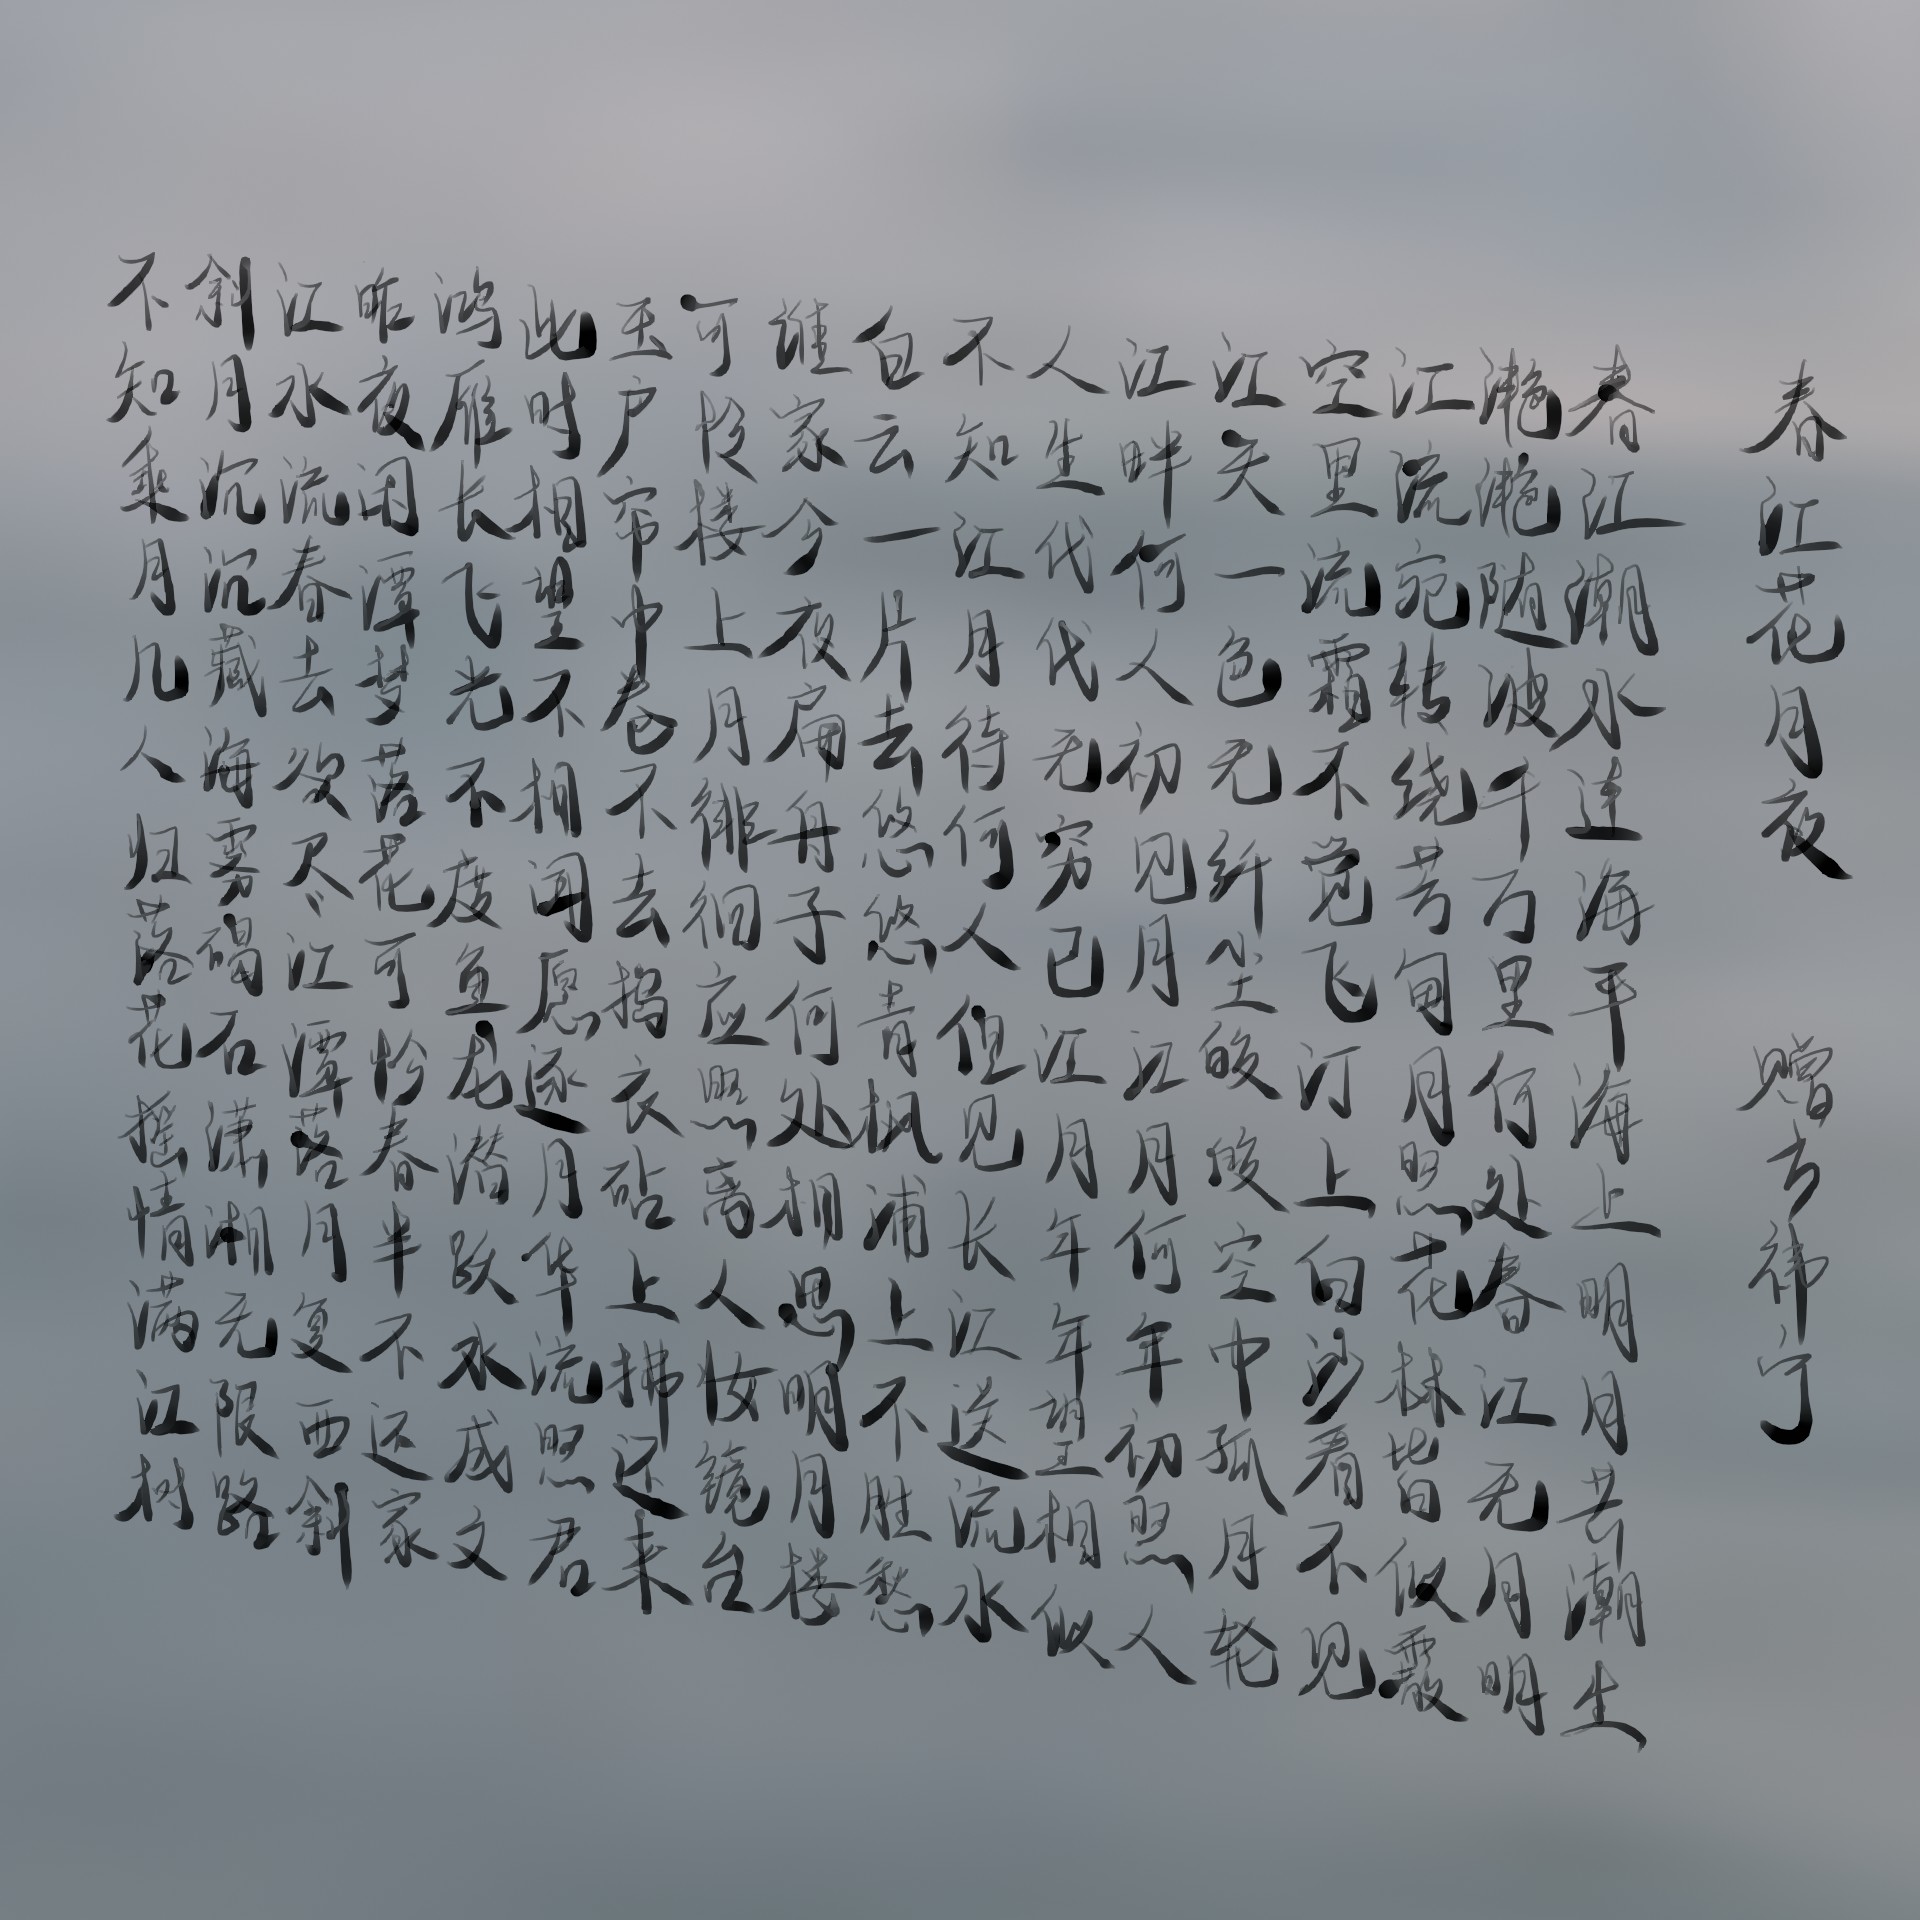 春江花月夜 赠方祎宁
春江潮水连海平海上明月共潮生
滟滟随波千万里何处春江无月明
江流宛转绕芳甸月照花林皆似霰
空里流霜不觉飞汀上白沙看不见
江天一色无纤尘皎皎空中孤月轮
江畔何人初见月江月何年初照人
人生代代无穷已江月年年望相似
不知江月待何人但见长江送流水
白云一片去悠悠青枫浦上不胜愁
谁家今夜扁舟子何处相思明月楼
可怜楼上月徘徊应照离人妆镜台
玉户帘中卷不去捣衣砧上拂还来
此时相望不相闻愿逐月华流照君
鸿雁长飞光不度鱼龙潜跃水成文
昨夜闲潭梦落花可怜春半不还家
江水流春去欲尽江潭落月复西斜
斜月沉沉藏海雾碣石潇湘无限路
不知乘月几人归落花摇情满江树